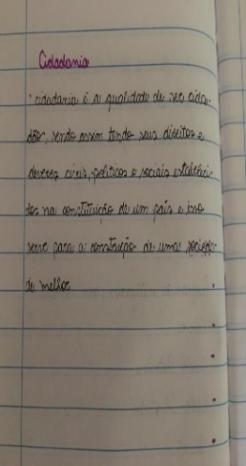 Cidadania
"cidadania é a qualidade de ser cida-
dão, sendo assim tendo seus direitos e
deveres civis, políticos e sociais estabeleci-
tos na constituição de um país e isso
serve para a construção de uma socieda-
de melhor